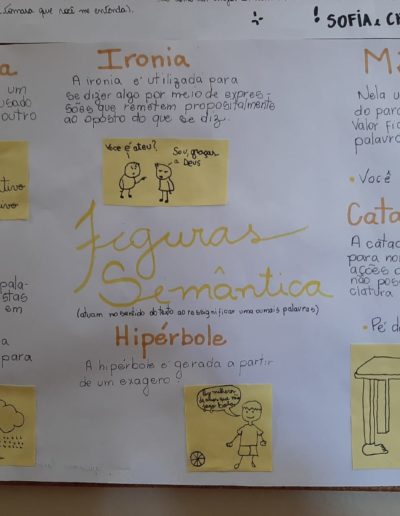 (tomara que você me entenda).
! SOFIA e CR
a
um
usado
outro
tivo
tivo
Ironia
A ironia é utilizada para
se dizer algo por meio de expres-
sões que remetem propositalmente
ao oposto do que se diz.
Você é ateu?
Sou, graças
a Deus
Figuras
Semântica
(atuam no sentido do texto ao ressignificar uma ou mais palavras)
pala-
stas
em
a
para
Hipérbole
A hipérbole é gerada a partir
de um exagero
anos que não
jogo bola
Nela u
do par
Valor fic
palavro
• Você
Cata
A catac
para no
ações d
não pos
clatura
• Pé d